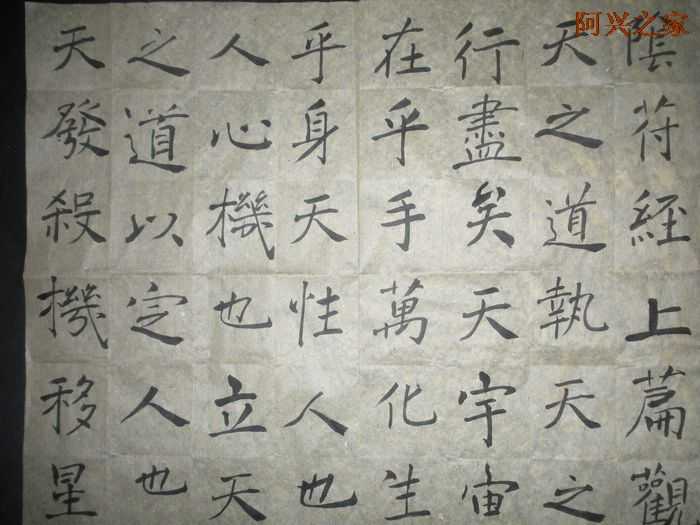 阿兴之家
陰符經上篇觀
天之道執天之
行盡矣天宇宙
在乎手萬化生
乎身天性人也
人心機也立天
之道以定人也
天發殺機移星